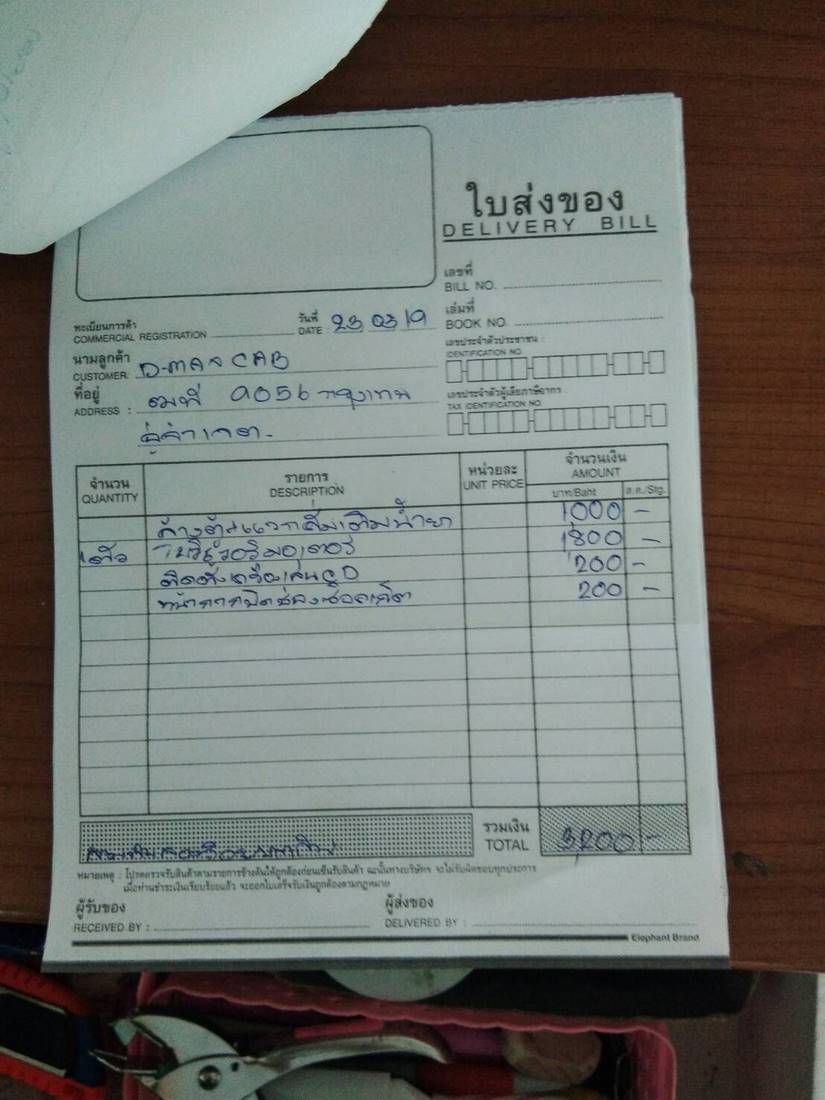 ใบส่งของ
DELIVERY BILL
เลขที่
BILL NO.
ทะเบียนการค้า
COMMERCIAL REGISTRATION
วันที่
DATE : 23 03 19
เล่มที่
BOOK NO.
นามลูกค้า
CUSTOMER: D-MAX CAB
เลขประจำตัวประชาชน :
IDENTIFICATION NO.
ที่อยู่
ADDRESS : 9056 กรุงเทพ
เลขประจำตัวผู้เสียภาษีอากร
TAX IDENTIFICATION NO.
จำนวน
QUANTITY
รายการ
DESCRIPTION
หน่วยละ
UNIT PRICE
จำนวนเงิน
AMOUNT
บาท/Baht ส.ต./Stg.
ล้างตู้แอร์ เติมน้ำยา 1000 -
1 ตัว 1800 -
ติดตั้งเครื่องเล่น CD 200 -
หน้ากากปิดช่อง 200 -
รวมเงิน
TOTAL 3,200 -
หมายเหตุ : โปรดตรวจรับสินค้าตามรายการข้างต้นให้ถูกต้องก่อนเซ็นรับสินค้า ฉะนั้นทางบริษัทฯ จะไม่รับผิดชอบทุกประการ
เมื่อท่านชำระเงินเรียบร้อยแล้ว จะออกใบเสร็จรับเงินถูกต้องตามกฎหมาย
ผู้รับของ
RECEIVED BY :
ผู้ส่งของ
DELIVERED BY :
Elephant Brand